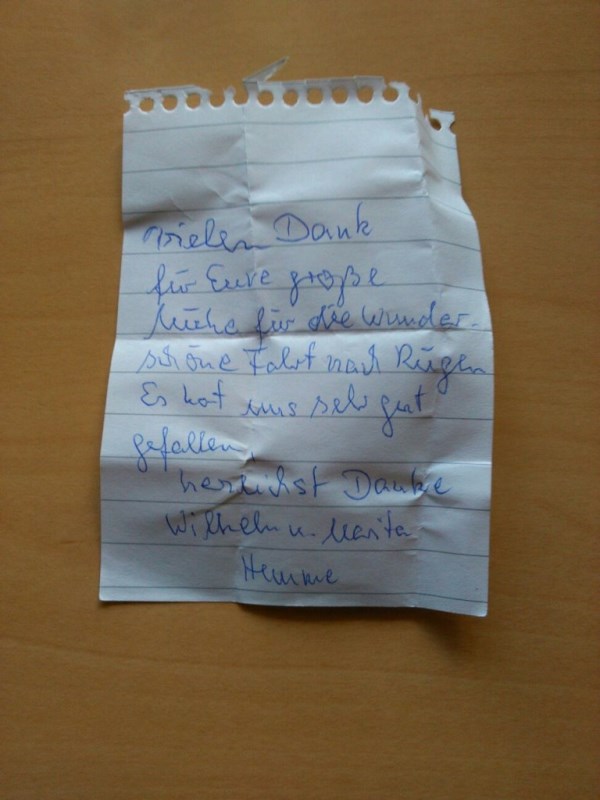 Vielen Dank
für Eure große
Mühe für die wunder-
schöne Fahrt nach Rügen
Es hat uns sehr gut
gefallen,
herzlichst Danke
Wilhelm u. Marita
Hemme